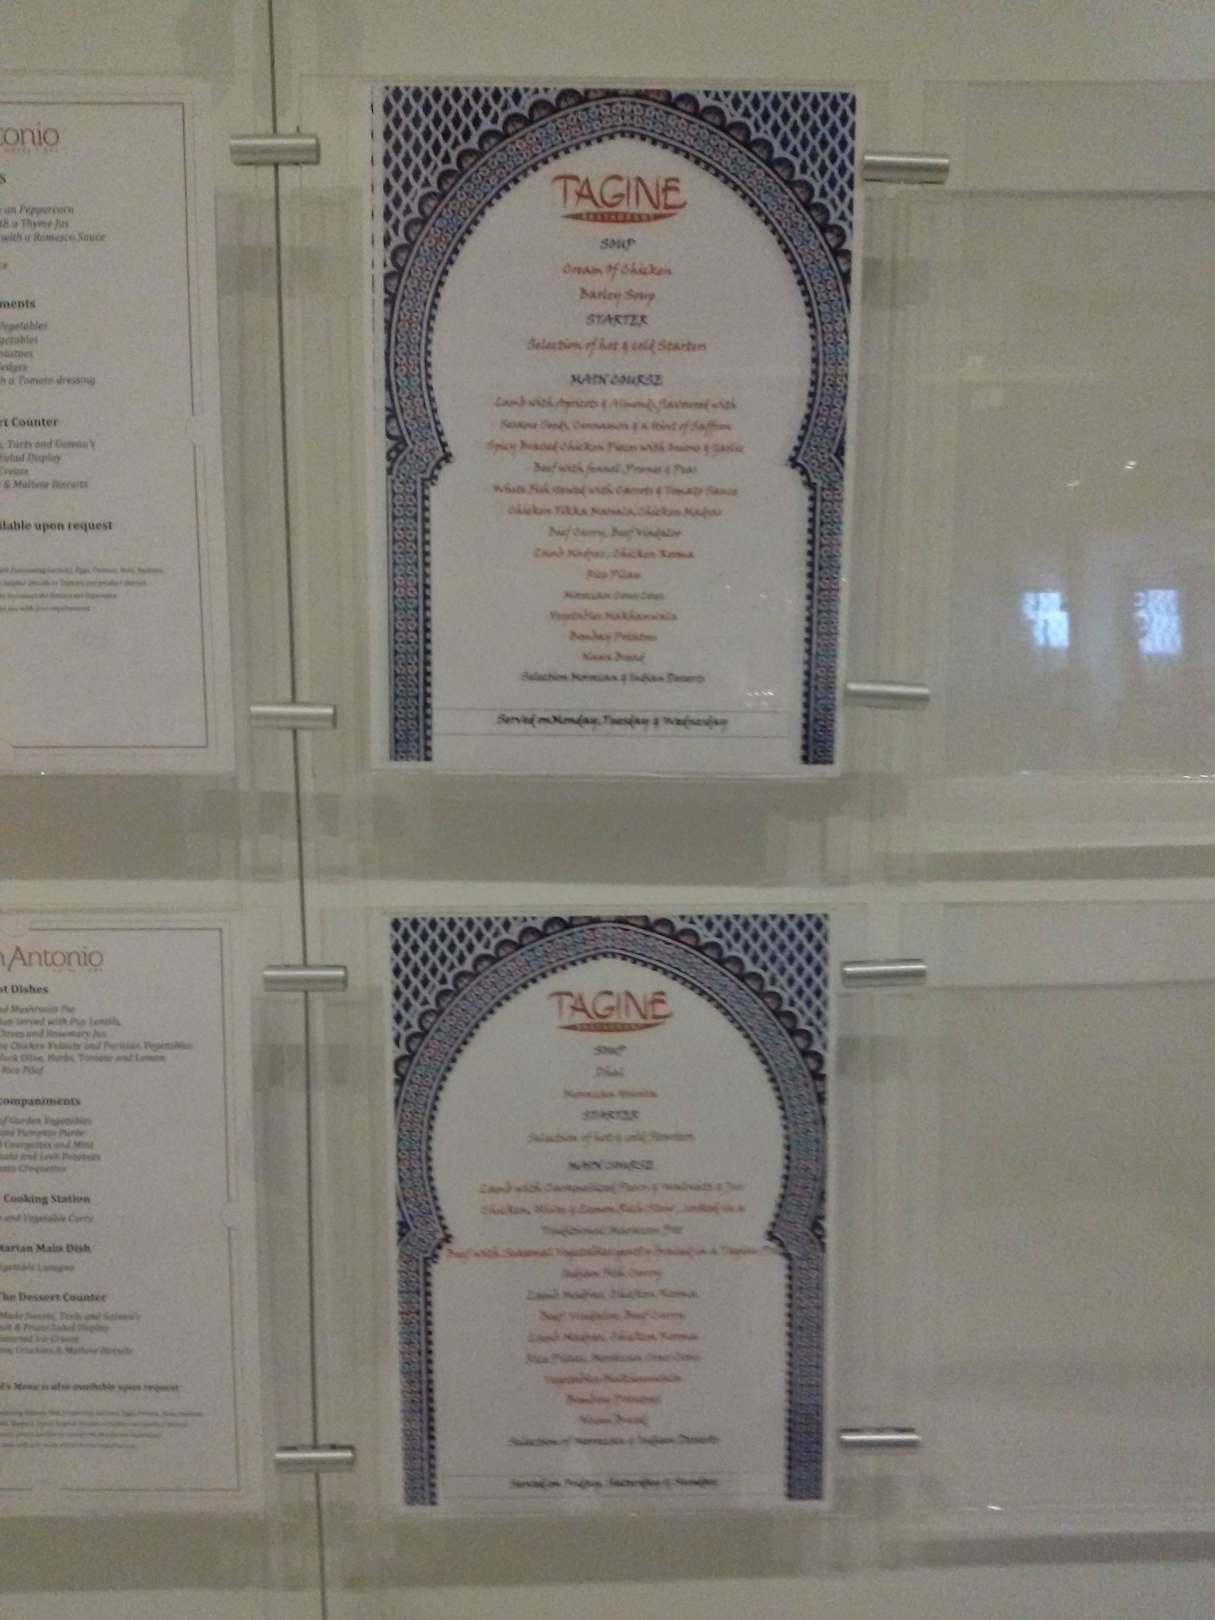 tonio
s
an Peppercorn
th a Thyme Jus
with a Romesco Sauce
ments
Vegetables
getables
otatoes
edges
h a Tomato dressing
rt Counter
, Tarts and Gateau's
Salad Display
Cream
& Maltese Biscuits
ilable upon request
TAGINE
RESTAURANT
SOUP
Cream Of Chicken
Barley Soup
STARTER
Selection of hot & cold Starters
MAIN COURSE
Lamb with Apricots & Almonds, flavoured with
Sesame Seeds, Cinnamon & a hint of Saffron
Spicy Braised Chicken Pieces with Onions & Garlic
Beef with fennel, Prunes & Peas
White Fish stewed with Carrots & Tomato Sauce
Chicken Tikka Masala, Chicken Madras
Beef Curry, Beef Vindaloo
Lamb Madras, Chicken Korma
Rice Pilau
Moroccan Cous Cous
Vegetables Makhanwala
Bombay Potatoes
Naan Bread
Selection Moroccan & Indian Desserts
Served on Monday, Tuesday & Wednesday
n Antonio
st Dishes
nd Mushroom Pie
served with Puy Lentils,
Cloves and Rosemary Jus
Chicken Veloute and Parisian Vegetables
lack Olive, Herbs, Tomato and Lemon
Rice Pilaf
companiments
of Garden Vegetables
and Pumpkin Purée
Courgettes and Mint
and Leek Potatoes
Croquettes
Cooking Station
and Vegetable Curry
tarian Main Dish
egetable Lasagne
The Dessert Counter
Made Sweets, Tarts and Gateau's
& Fruits Salad Display
Assorted Ice Cream
Crackers & Maltese Biscuits
's Menu is also available upon request
TAGINE
RESTAURANT
SOUP
Dhal
Moroccan Harira
STARTER
Selection of hot & cold Starters
MAIN COURSE
Lamb with Caramelized Pears & Walnuts & Jus
Chicken, Olives & Lemon Rich Stew, cooked in a
Traditional Moroccan Pot
Beef with Seasonal Vegetables gently braised in a Tagine
Indian Fish Curry
Lamb Madras, Chicken Korma
Beef Vindaloo, Beef Curry
Lamb Madras, Chicken Korma
Rice Pilau, Moroccan Cous Cous
Vegetables Makhanwala
Bombay Potatoes
Naan Bread
Selection of Moroccan & Indian Desserts
Served on Friday, Saturday & Sunday